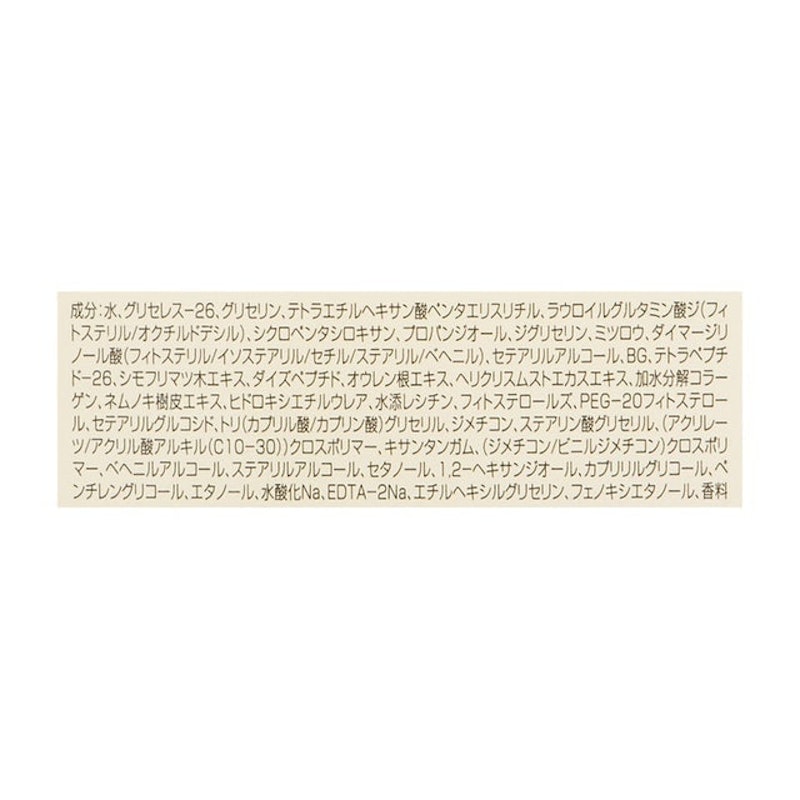 成分:水、グリセレス-26、グリセリン、テトラエチルヘキサン酸ペンタエリスリチル、ラウロイルグルタミン酸ジ(フィ
トステリル/オクチルドデシル)、シクロペンタシロキサン、プロパンジオール、ジグリセリン、ミツロウ、ダイマージリ
ノール酸(フィトステリル/イソステアリル/セチル/ステアリル/ベヘニル)、セテアリルアルコール、BG、テトラペプチ
ド-26、シモフリマツ木エキス、ダイズペプチド、オウレン根エキス、ヘリクリスムストエカスエキス、加水分解コラー
ゲン、ネムノキ樹皮エキス、ヒドロキシエチルウレア、水添レシチン、フィトステロールズ、PEG-20フィトステロー
ル、セテアリルグルコシド、トリ(カプリル酸/カプリン酸)グリセリル、ジメチコン、ステアリン酸グリセリル、(アクリレー
ツ/アクリル酸アルキル(C10-30))クロスポリマー、キサンタンガム、(ジメチコン/ビニルジメチコン)クロスポリ
マー、ベヘニルアルコール、ステアリルアルコール、セタノール、1,2-ヘキサンジオール、カプリリルグリコール、ペ
ンチレングリコール、エタノール、水酸化Na、EDTA-2Na、エチルヘキシルグリセリン、フェノキシエタノール、香料